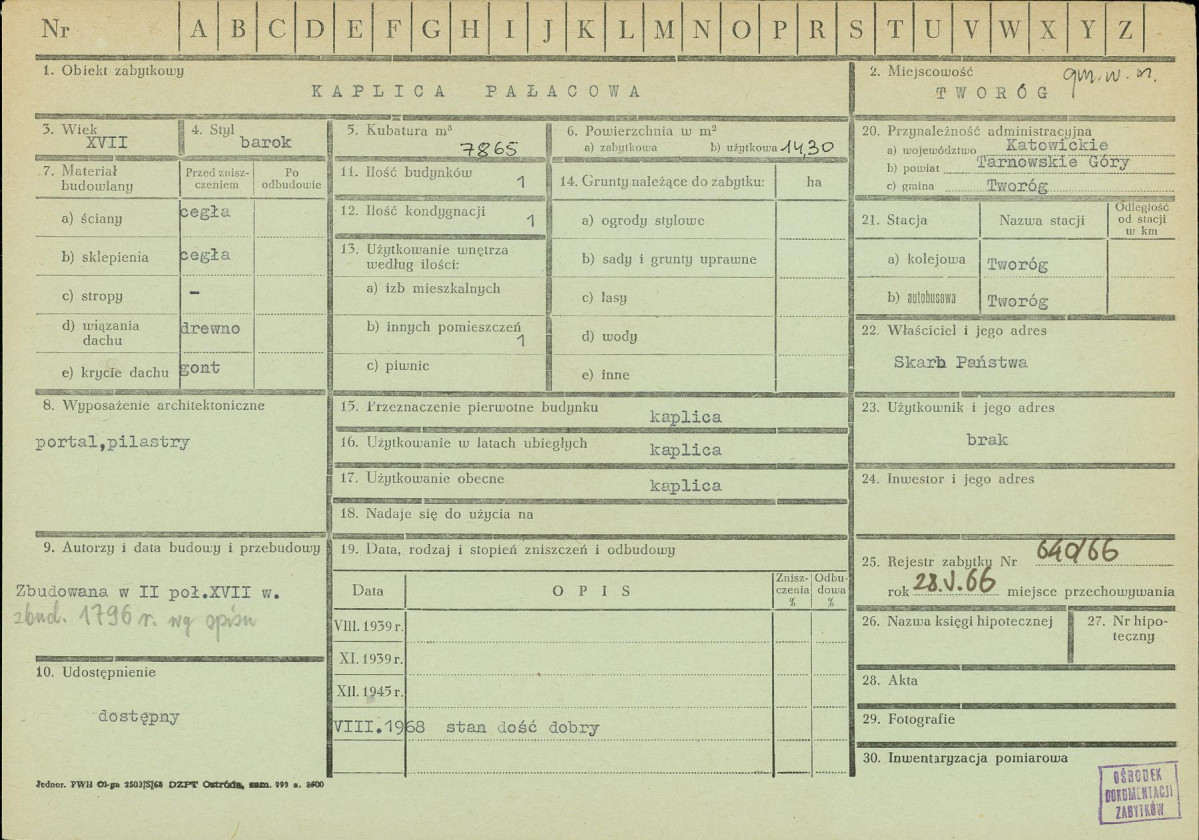 Nr A B C D E F G H I J K L M N O P R S T U V W X Y Z
1. Obiekt zabytkowy
KAPLICA PAŁACOWA
2. Miejscowość
gm. w. m.
TWORÓG
3. Wiek
XVII
4. Styl
barok
5. Kubatura m³
7865
6. Powierzchnia w m²
a) zabytkowa b) użytkowa 14,30
7. Materiał budowlany
Przed zniszczeniem
Po odbudowie
a) ściany cegła
b) sklepienia cegła
c) stropy –
d) wiązania dachu drewno
e) krycie dachu gont
8. Wyposażenie architektoniczne
portal,pilastry
9. Autorzy i data budowy i przebudowy
Zbudowana w II poł.XVII w.
zbud. 1796 r. wg opisu
10. Udostępnienie
dostępny
11. Ilość budynków
1
12. Ilość kondygnacji
1
13. Użytkowanie wnętrza
według ilości:
a) izb mieszkalnych
b) innych pomieszczeń
1
c) piwnic
14. Grunty należące do zabytku: ha
a) ogrody stylowe
b) sady i grunty uprawne
c) lasy
d) wody
e) inne
15. Przeznaczenie pierwotne budynku kaplica
16. Użytkowanie w latach ubiegłych kaplica
17. Użytkowanie obecne kaplica
18. Nadaje się do użycia na
19. Data, rodzaj i stopień zniszczeń i odbudowy
Data OPIS Zniszczenia % Odbudowa %
VIII. 1939 r.
XI. 1939 r.
XII. 1945 r.
VIII.1968 stan dość dobry
20. Przynależność administracyjna
a) województwo Katowickie
b) powiat Tarnowskie Góry
c) gmina Tworóg
21. Stacja Nazwa stacji Odległość od stacji w km
a) kolejowa Tworóg
b) autobusowa Tworóg
22. Właściciel i jego adres
Skarb Państwa
23. Użytkownik i jego adres
brak
24. Inwestor i jego adres
25. Rejestr zabytku Nr 640/66
rok 28.V.66 miejsce przechowywania
26. Nazwa księgi hipotecznej
27. Nr hipoteczny
28. Akta
29. Fotografie
30. Inwentaryzacja pomiarowa
OŚRODEK
DOKUMENTACJI
ZABYTKÓW
Jednor. PWH Ol-ga 2503/S/68 DZPT Ostróda, zam. 999 n. 2500